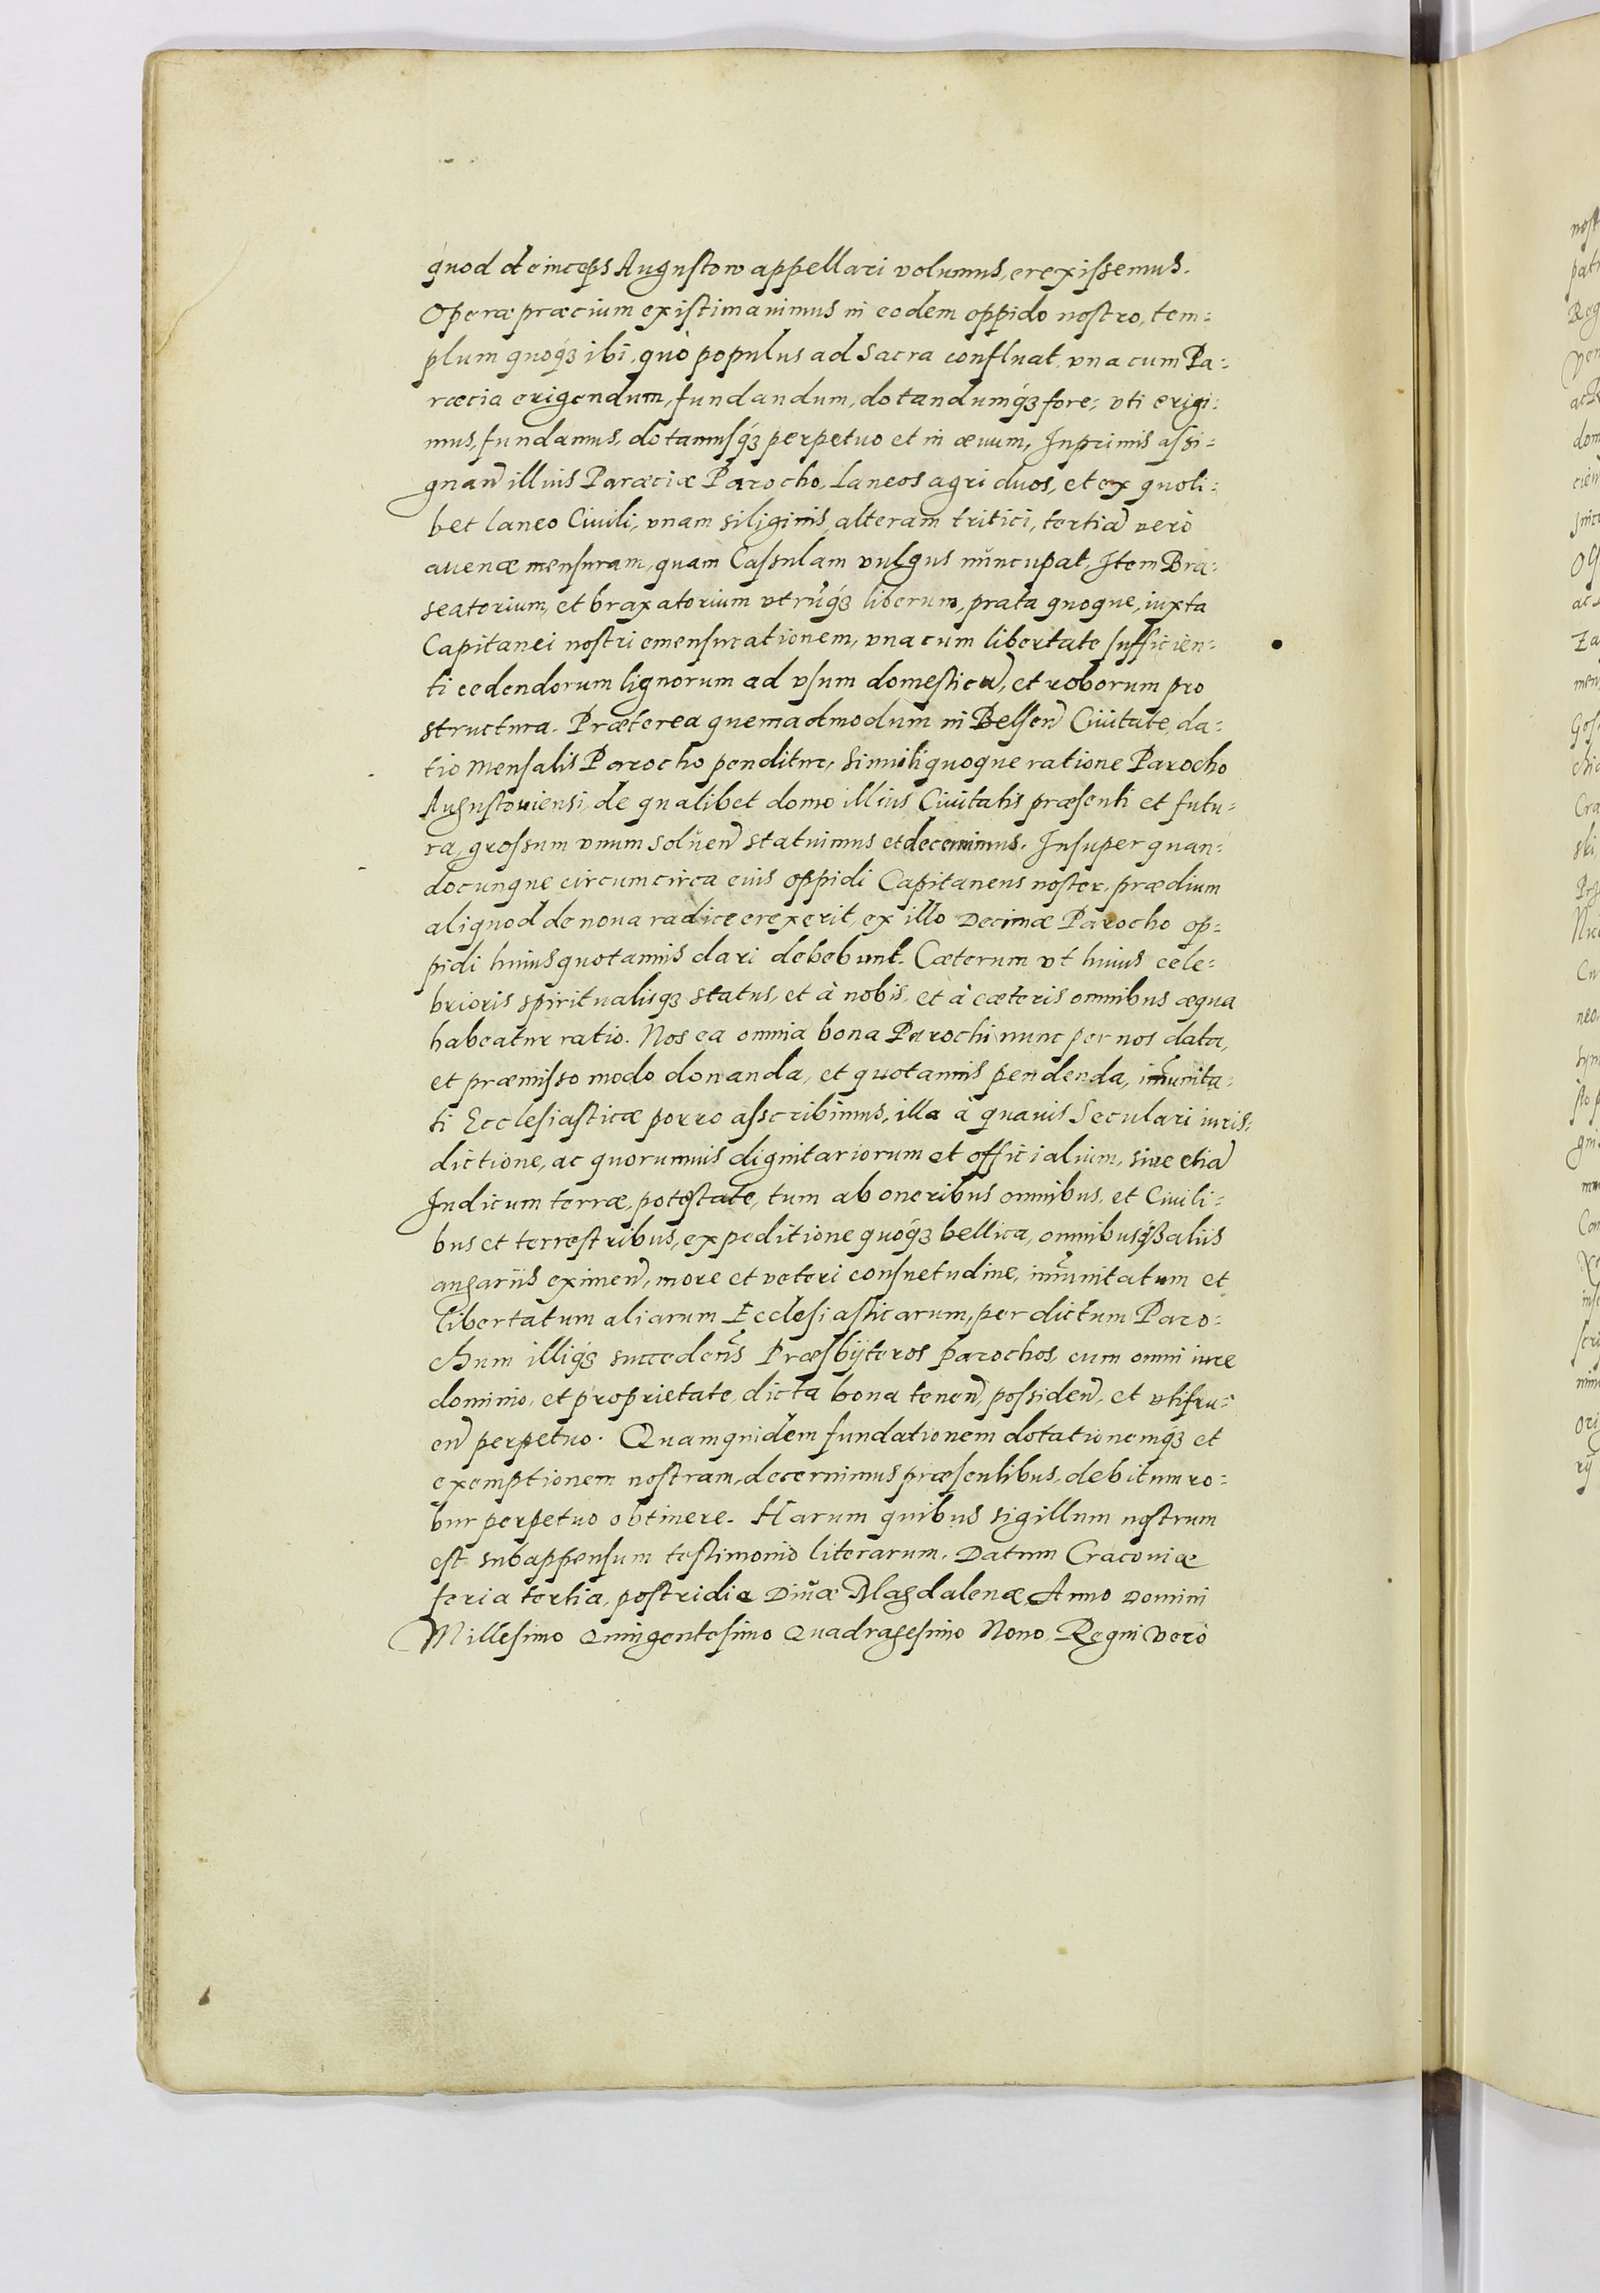 quod deinceps Augustow appellari volumus, erexissemus.
Operæ præcium existimauimus in eodem oppido nostro, tem=
plum quoq3 ibi, quò populus ad Sacra confluat, vna cum Pa=
rœcia erigendum, fundandum, dotandumq3 fore; vti erigi=
mus, fundamus, dotamusq3 perpetuo et in æuum, Inprimis assi=
gnan̄ illius Parœciæ Parocho, Laneos agri duos, et ex quoli=
bet laneo Ciuili, vnam siliginis, alteram tritici, tertiā verò
auenæ mensuram, quam Cassulam vulgus nuncupat, Item Bra=
seatorium, et braxatorium vtrūq3 liberum, prata quoque, iuxta
Capitanei nostri emensurationem, vna cum libertate sufficien=
ti cedendorum lignorum ad vsum domesticū, et roborum pro
structura. Præterea quemadmodum in Belsen̄ Ciuitate, da=
tio mensalis Parocho penditur, simili quoque ratione Parocho
Augustouiensi, de qualibet domo illius Ciuitatis præsenti et futu=
ra, grossum vnum soluen̄ statuimus et decernimus. Insuper quan=
documque circumcirca eius oppidi Capitaneus noster, prædium
aliquod de noua radice erexerit, ex illo Decimæ Parocho op=
pidi huius quotannis dari debebunt. Cæterum vt huius cele=
brioris spiritualisq3 status, et à nobis, et à cæteris omnibus æqua
habeatur ratio. Nos ea omnia bona Parochi nunc per nos data,
et præmisso modo donanda, et quotannis pendenda, im̄unita=
ti Ecclesiasticæ porro asscribimus, illa à quauis Seculari iuris=
dictione, ac quorumuis dignitariorum et officialium, siue etiā
Iudicum terræ, potestate, tum ab oneribus omnibus, et Ciuili=
bus et terrestribus, expeditione quoq3 bellica, omnibusq3 aliis
angariis eximen̄, more et veteri consuetudine, im̄unitatum et
libertatum aliarum Ecclesiasticarum, per dictum Paro=
chum illiq3 succeden̄s Præsbyteros parochos, cum omni iure
dominio, et proprietate, dicta bona tenen̄, possiden̄, et vtifru=
en̄ perpetuo. Quamquidem fundationem dotationemq3 et
exemptionem nostram, decernimus præsentibus, debitum ro=
bur perpetuo obtinere. Harum quibus sigillum nostrum
est subappensum testimonio literarum. Datum Cracouiæ
feria tertia, postridie Diuæ Magdalenæ, Anno Domini
Millesimo Quingentesimo Quadragesimo Nono, Regni verò